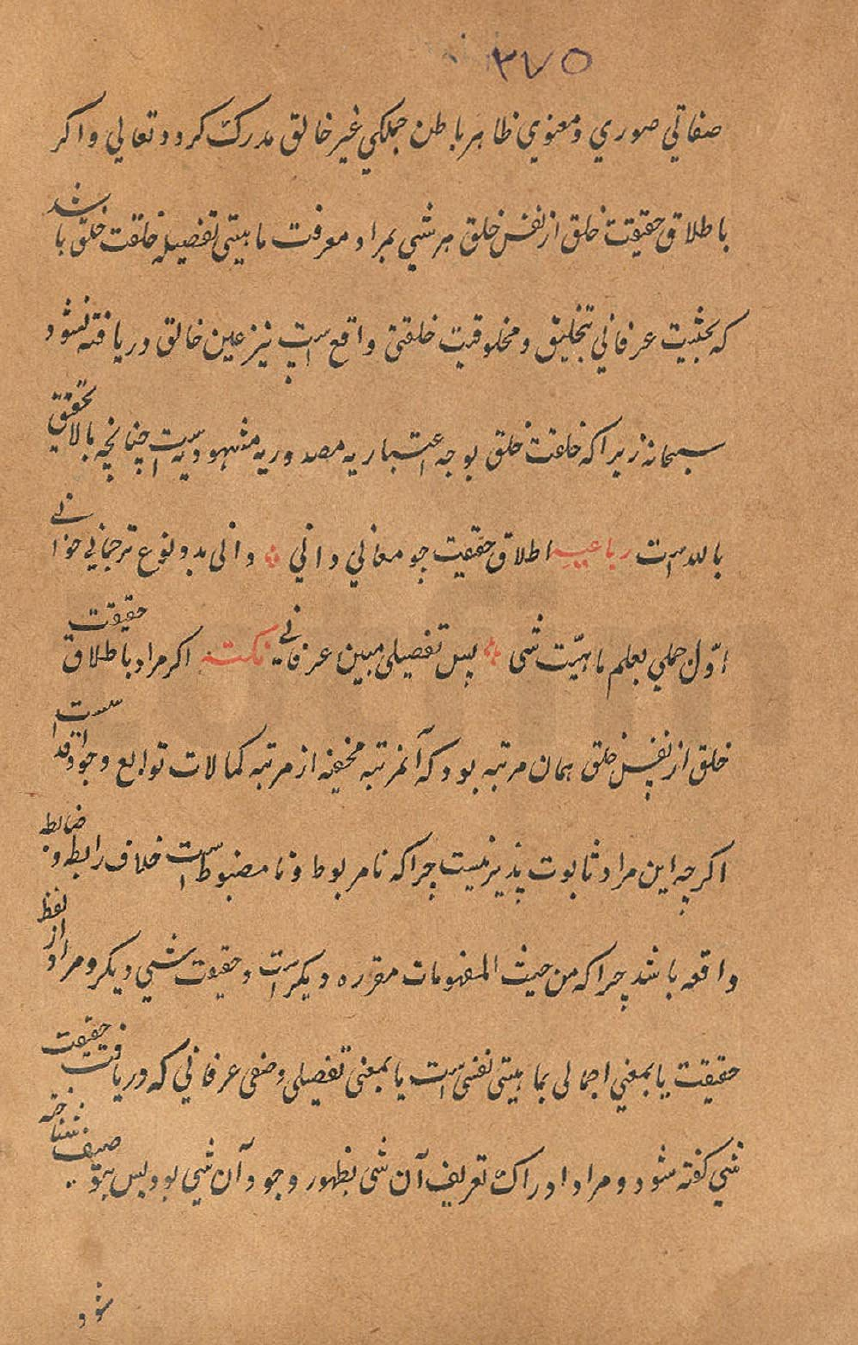 ۳۷۵
صفاتي صوري ومعنوي ظاهر باطن جملكي غير خالق مدرك كردد تعالي واكر
باطلاق حقيقت خلق از نفس خلق هر شي بمراد معرفت ماهيتى تفصيله خلقت خلق باشد
كه بحثيت عرفاني بتخليق ومخلوقيت خلقتى واقع است نيز عين خالق دريافته نشود
سبحانه زيراكه خلقت خلق بوجه اعتباريه مصدوريه مشهوديه است چنانچه بالا تحقيق
بالله است رباعيه اطلاق حقيقت جو معاني داني وانى بدو نوع ترجماني خوانے
اوّل جملي بعلم ماهيّت شى پس تفصيلى مبين عرفانے نكته اكر مراد باطلاق حقيقت
خلق از نفس خلق همان مرتبه بود كه آنمرتبه مخفيه از مرتبه كمالات توابع وجود است
اكرچه اين مراد ثابوت پذير نيست چراكه نامربوط ونامضبوط است خلاف رابطه وضابطه
واقعه باشد چراكه من حيث المفهومات مقرره ديكر است وحقيقت شي ديكر ومراد از لفظ
حقيقت يا بمعني اجمالى بماهيتى نفسى است يا بمعنى تفصيلى وصفى عرفاني كه دريافت حقيقت
شي كفته شود ومراد ادراك تعريف آن شى بظهور وجود آن شي بود پس بتوصيف شناخته
شود